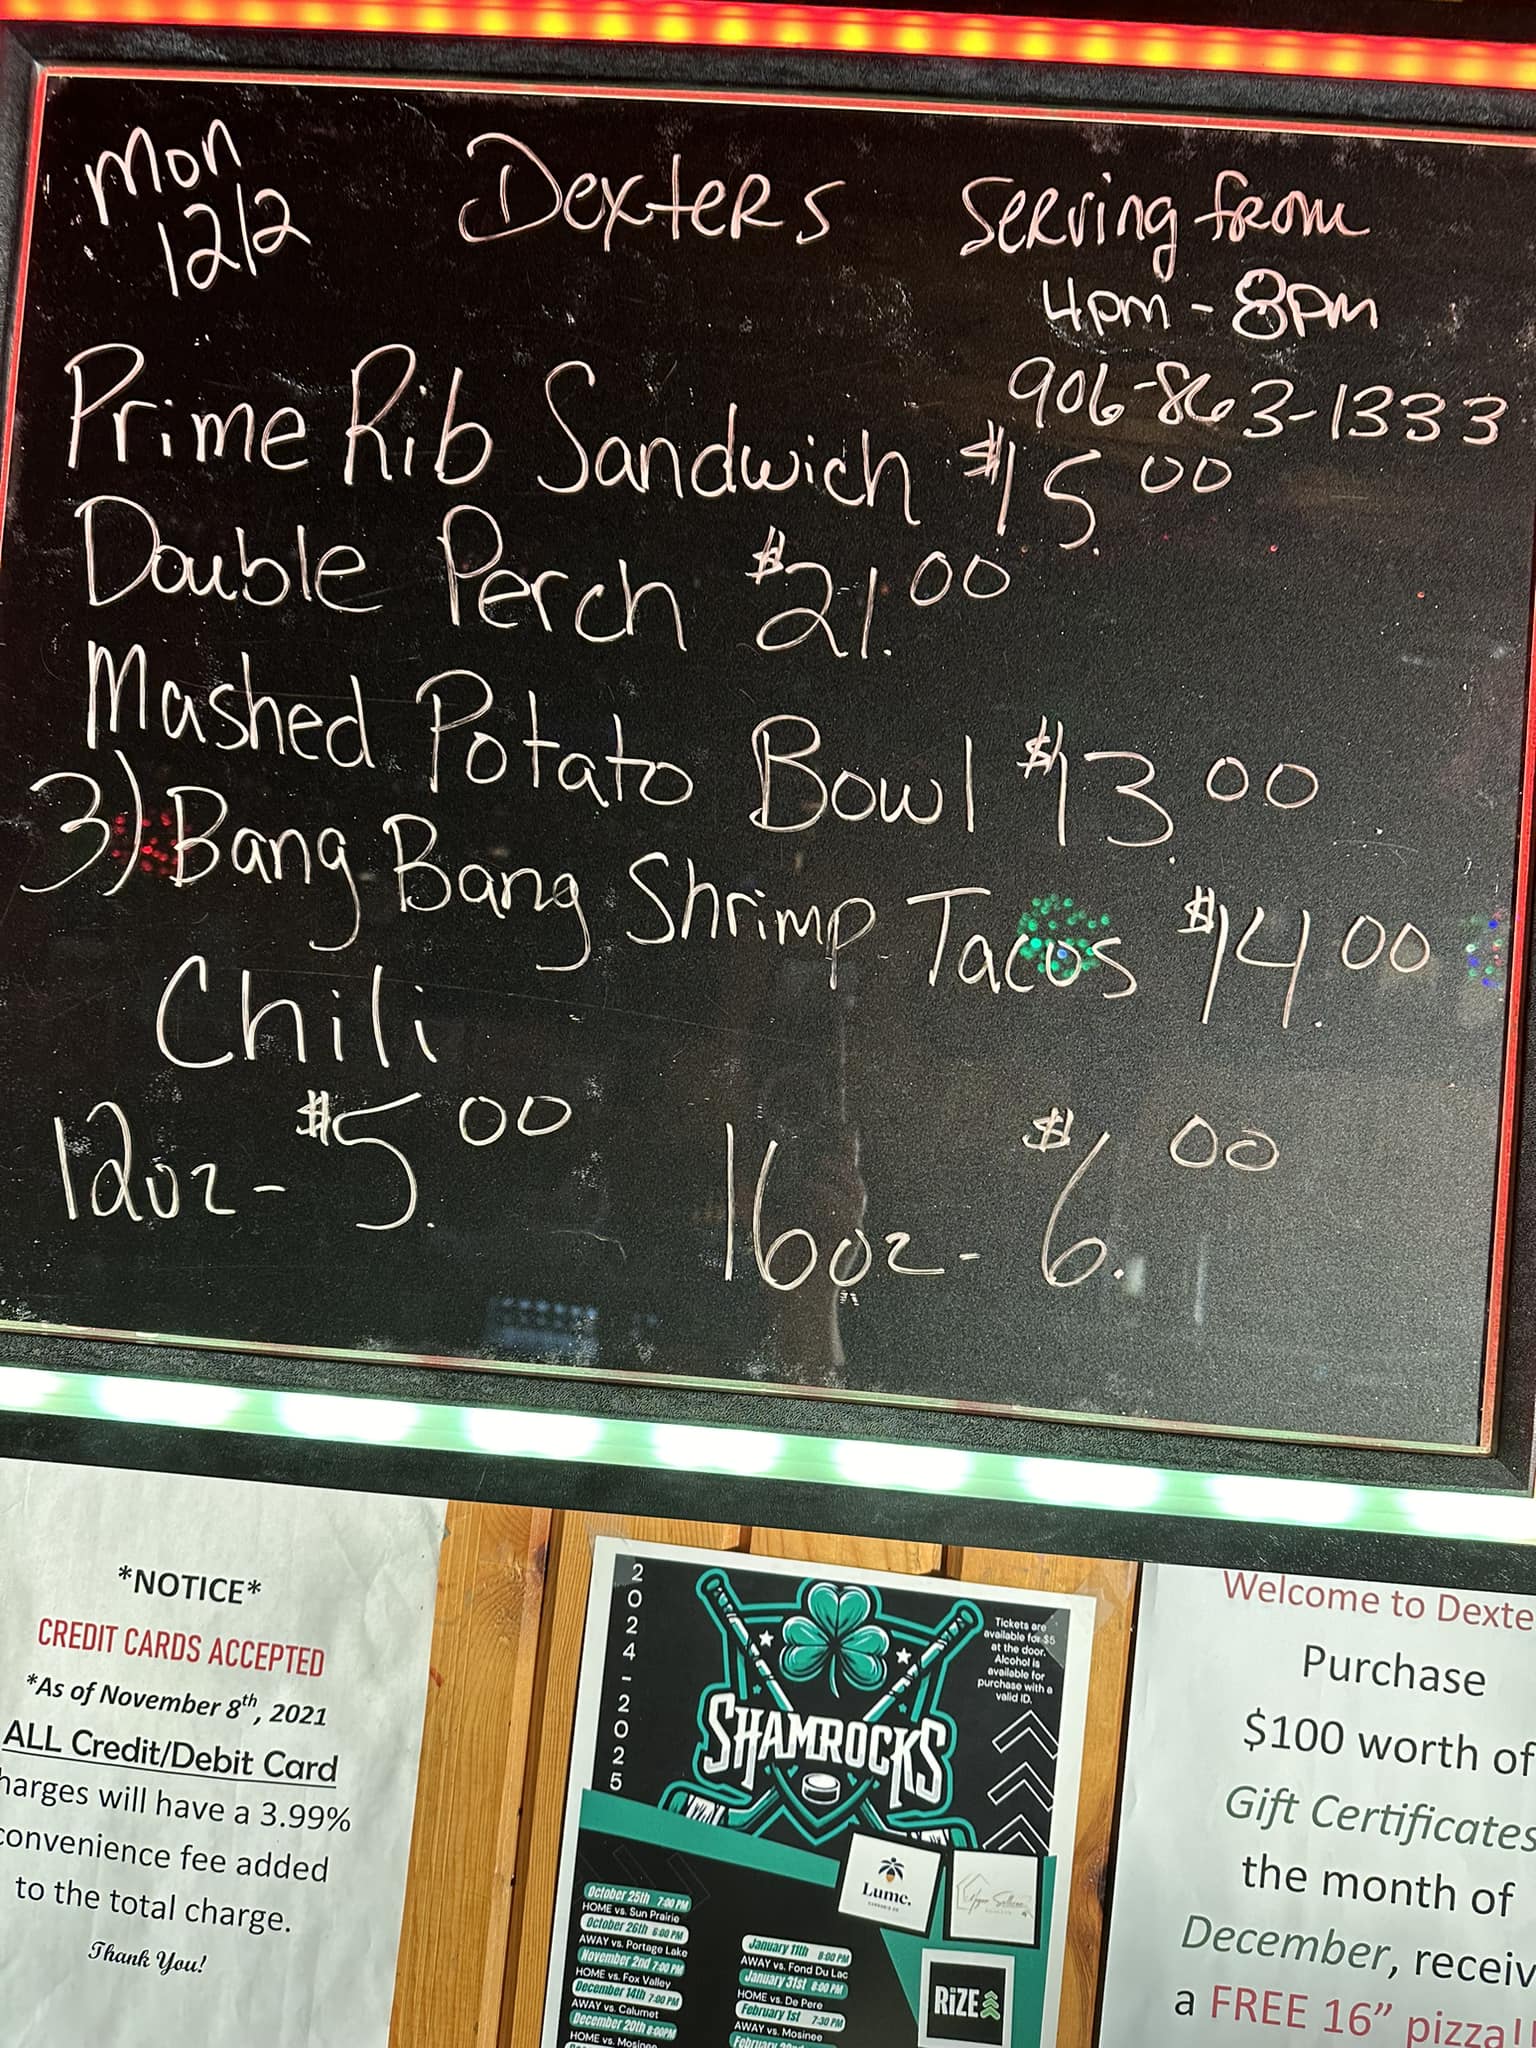 Mon
12/2
Dexters
Serving from
4pm - 8pm
906-863-1333
Prime Rib Sandwich $15.00
Double Perch $21.00
Mashed Potato Bowl $13.00
3) Bang Bang Shrimp Tacos $14.00
Chili
12oz - $5.00
16oz - $6.00
*NOTICE*
CREDIT CARDS ACCEPTED
*As of November 8th, 2021
ALL Credit/Debit Card
harges will have a 3.99%
convenience fee added
to the total charge.
Thank You!
2024-2025
Tickets are
available for $5
at the door.
Alcohol is
available for
purchase with a
valid ID.
SHAMROCKS
Lume.
RiZE
October 25th 7:00 PM
HOME vs. Sun Prairie
October 26th 6:00 PM
AWAY vs. Portage Lake
November 2nd 7:00 PM
HOME vs. Fox Valley
December 14th 7:00 PM
AWAY vs. Calumet
December 20th 8:00PM
HOME vs. Mosinee
January 11th 8:00 PM
AWAY vs. Fond Du Lac
January 31st 8:00 PM
HOME vs. De Pere
February 1st 7:30 PM
AWAY vs. Mosinee
Welcome to Dexte
Purchase
$100 worth of
Gift Certificates
the month of
December, receiv
a FREE 16” pizza!!